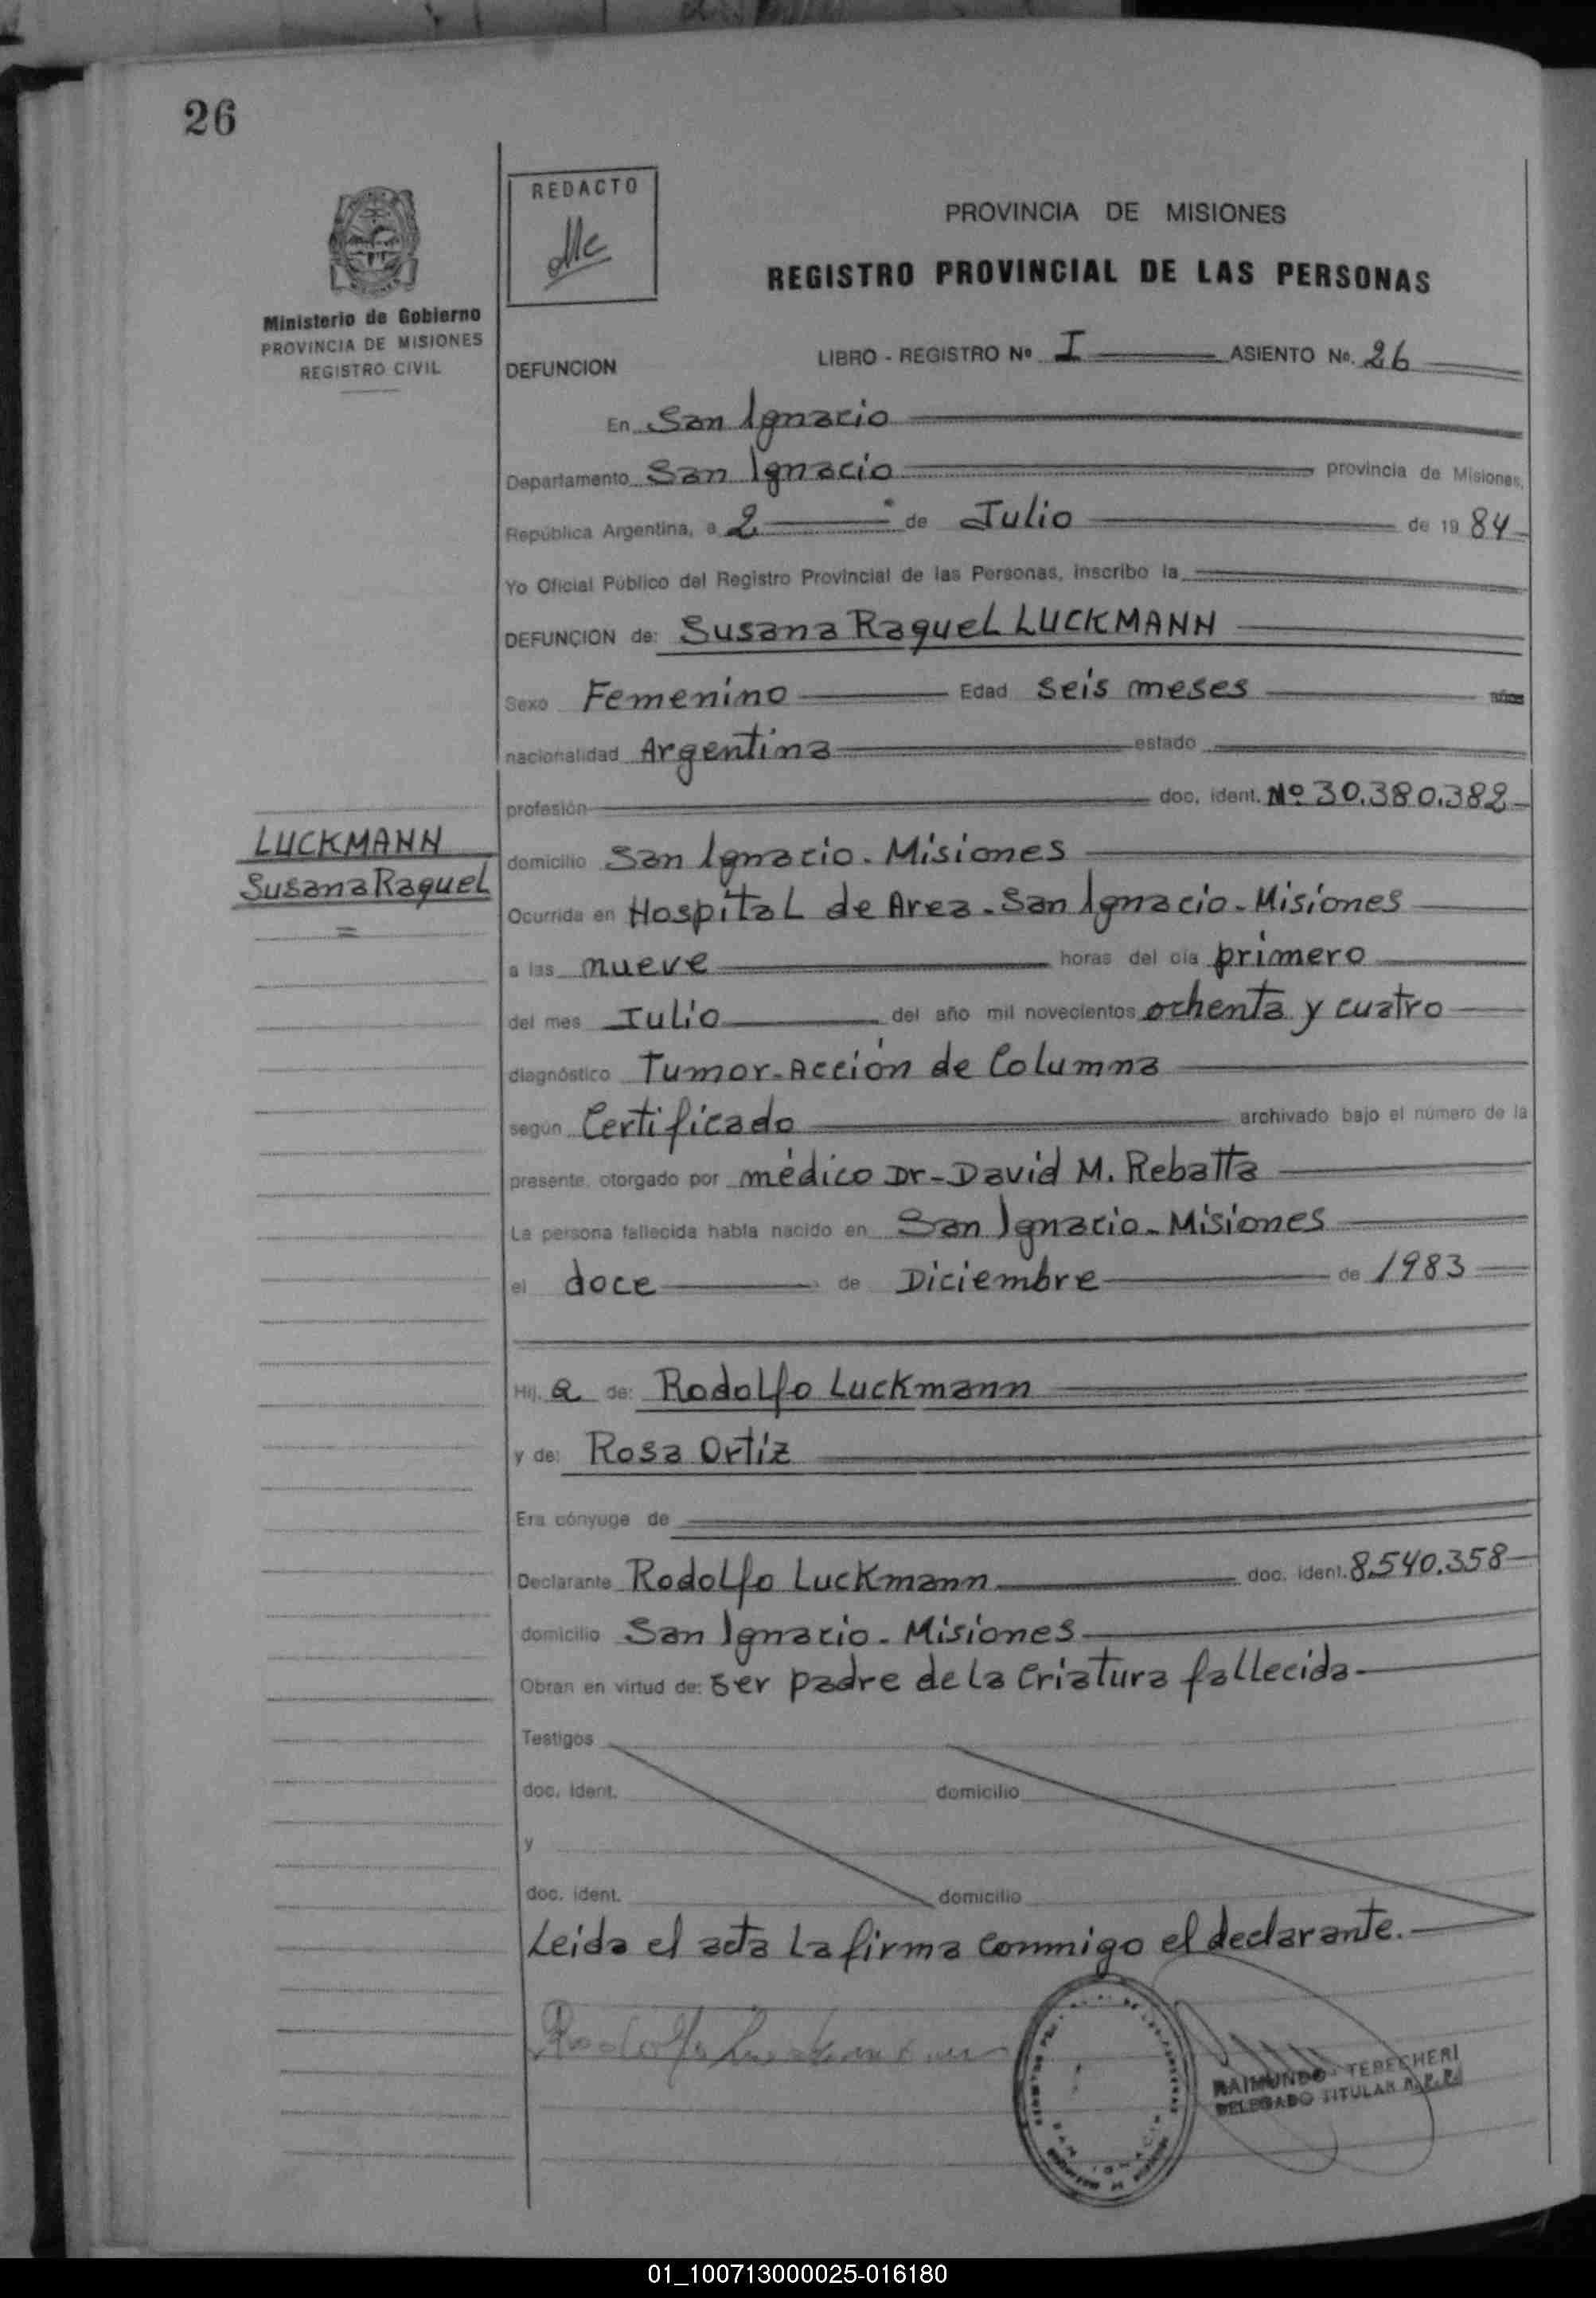 26
REDACTO
PROVINCIA DE MISIONES
REGISTRO PROVINCIAL DE LAS PERSONAS
Ministerio de Gobierno
PROVINCIA DE MISIONES
REGISTRO CIVIL
DEFUNCION
LIBRO - REGISTRO Nº I ASIENTO Nº. 26
En San Ignacio
Departamento San Ignacio provincia de Misiones,
República Argentina, a 2 de Julio de 19 84
Yo Oficial Público del Registro Provincial de las Personas, inscribo la
DEFUNCION de: Susana Raquel LUCKMANN
Sexo Femenino Edad seis meses años
nacionalidad Argentina estado
profesión doc. ident. Nº 30.380.382
LUCKMANN
Susana Raquel
domicilio San Ignacio - Misiones
Ocurrida en Hospital de Area - San Ignacio - Misiones
a las nueve horas del día primero
del mes Julio del año mil novecientos ochenta y cuatro
diagnóstico Tumor - Acción de Columna
según Certificado archivado bajo el número de la
presente, otorgado por médico Dr - David M. Rebatta
La persona fallecida había nacido en San Ignacio - Misiones
el doce de Diciembre de 1983
Hij. a de: Rodolfo Luckmann
y de: Rosa Ortiz
Era cónyuge de
Declarante Rodolfo Luckmann doc. ident. 8.540.358
domicilio San Ignacio - Misiones
Obran en virtud de: ser padre de la criatura fallecida
Testigos
doc. ident. domicilio
y
doc. ident. domicilio
Leida el acta la firma conmigo el declarante.
Rodolfo Luckmann
RAIMUNDO TEBECHERI
DELEGADO TITULAR R.P.P.
01_100713000025-016180